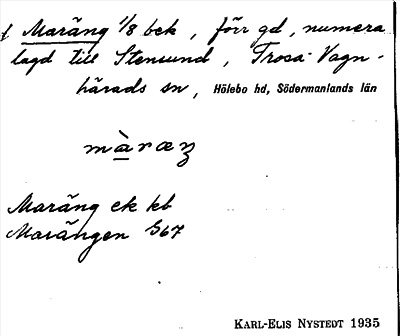 f Maräng 1/8 bek, förr gd, numera
lagd till Stensund, Trosa-Vagn-
härads sn, Hölebo hd, Södermanlands län
màræŋ
Maräng ek kb
Marängen S67
KARL-ELIS NYSTEDT 1935